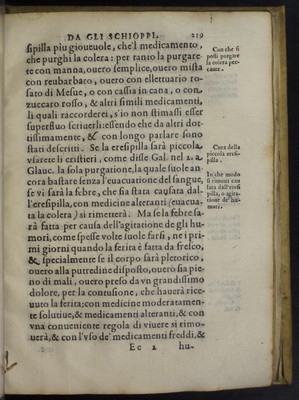 DA GLI SCHIOPPI. 219
sipilla piu gioueuole, che'l medicamento,
che purghi la colera: per tanto la purgare
te con manna, ouero semplice, ouero mista
con reubarbaro, ouero con ellettuario ro-
sato di Mesue, o con cassia in cana, o con
zuccaro rosso, & altri simili medicamenti,
li quali raccorderei, s'io non stimassi esser
superfluo scriuerli: essendo che da altri dot-
tissimamente, & con longo parlare sono
stati descritti. Se la eresipilla sarà piccola,
vsarete li cristieri, come disse Gal. nel 2. a
Glauc. la sola purgatione, la quale suole an
cora bastare senza l'euacuatione del sangue,
se vi sarà la febre, che sia stata causata dal-
l'eresipilla, con medicine alteranti (euacua-
ta la colera) si rimetterà. Ma se la febre sa-
rà fatta per causa dell'agitatione de gli hu-
mori, come spesse volte suole farsi, ne i pri-
mi giorni quando la ferita è fatta da fresco,
& specialmente se il corpo sarà pletorico,
ouero alla putredine disposto, ouero sia pie-
no di mali, ouero preso da vn grandissimo
dolore, per la contusione, che hauerà rice-
uuto la ferita; con medicine moderatamen-
te solutiue, & medicamenti alteranti, & con
vna conueniente regola di viuere si rimo-
uerà, & con l'vso de' medicamenti freddi, &
Ee 2 hu-
Con che si
possi purgare
la colera pec-
cante.
Cura della
piccola eresi-
pilla.
In che modo
si rimoui cau
sata dall'eresi
pilla, o agita-
tione de' hu-
mori.